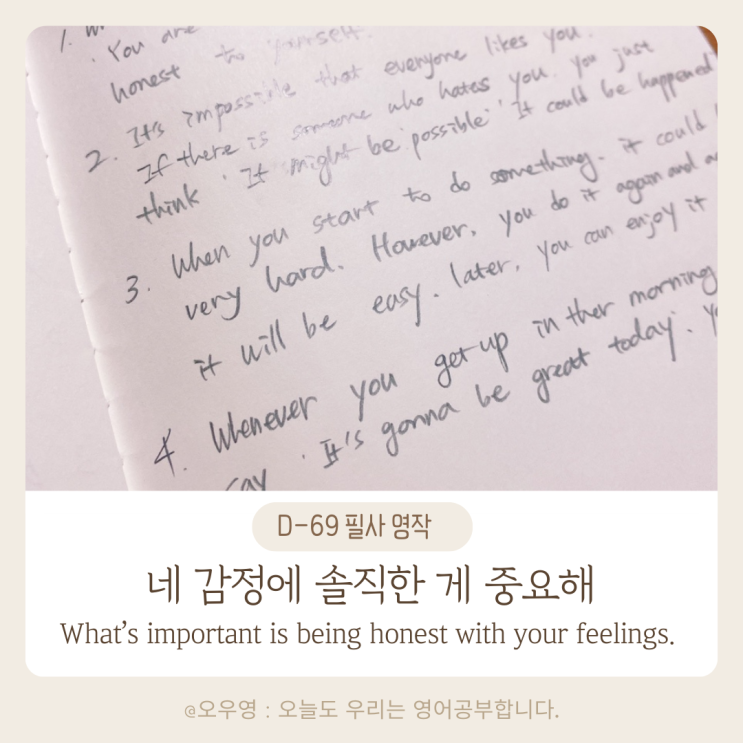 1.
You are
honest to yourself.
2. It's impossible that everyone likes you.
If there is someone who hates you. you just
think 'It might be possible' 'It could be happened'
3. When you start to do something. it could
very hard. However, you do it again and
it will be easy. later, you can enjoy it
4. Whenever you get up in ther morning
say 'It's gonna be great today'.
D-69 필사 명작
네 감정에 솔직한 게 중요해
What's important is being honest with your feelings.
@오우영 : 오늘도 우리는 영어공부합니다.